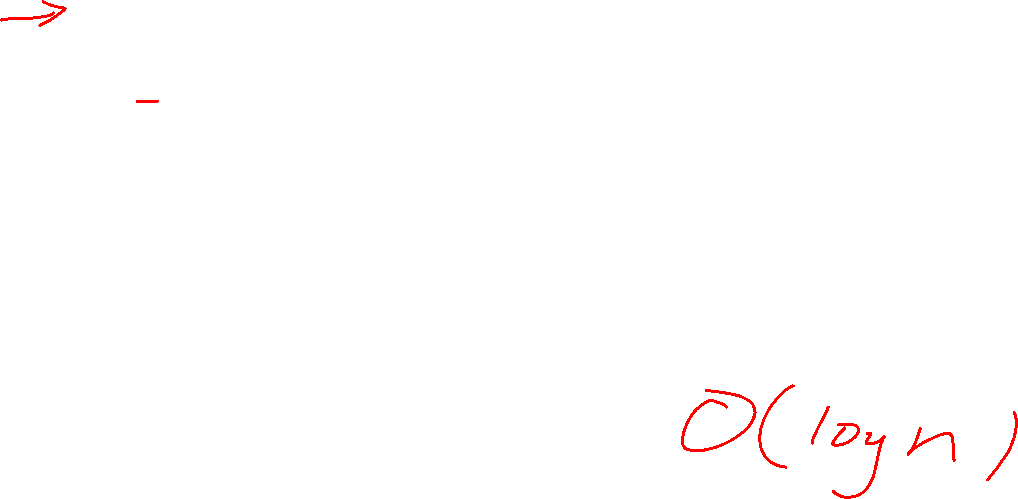 →
–
O(log n)